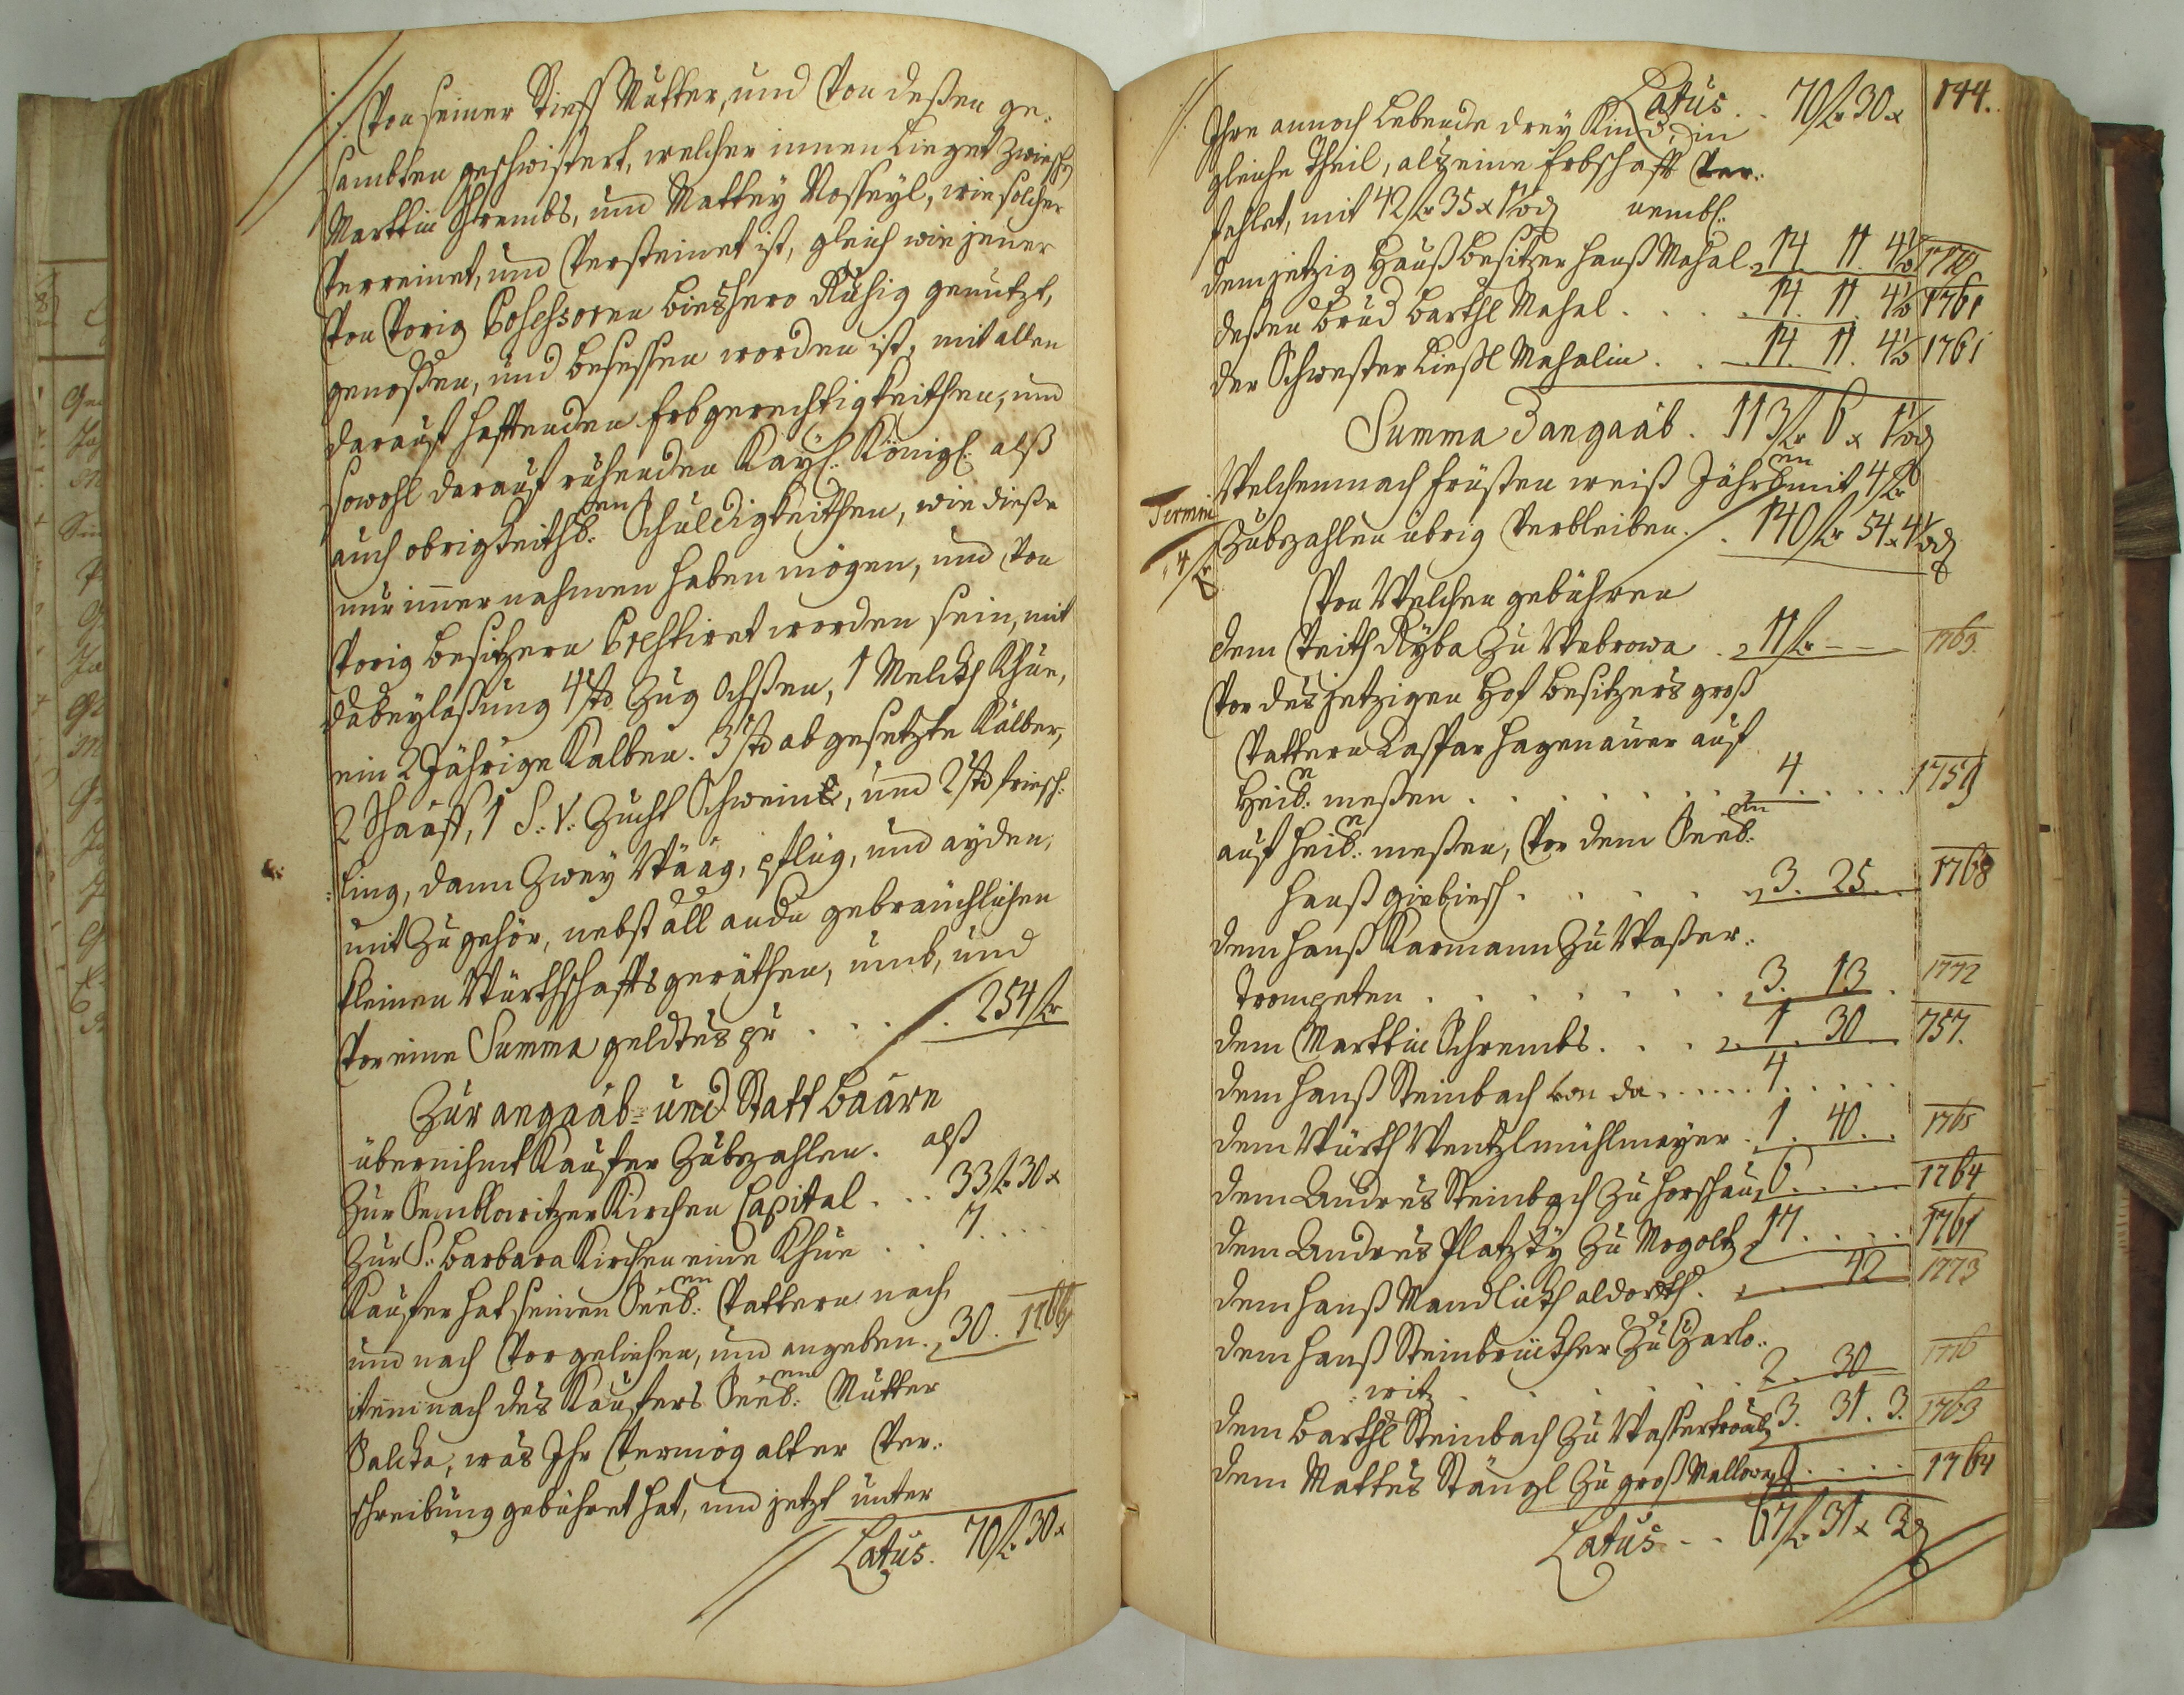 Von seiner Stieff Mutter, und von deßen ge-
sambten geschwistert, welcher innen Lieget zwischen
Marttin Schrembs, und Mattey Nosseyl, wie solcher
Verreinet, und Versteinet ist, gleich wie jener
Von Vorig Possessoren bieshero Ruhig genutzt,
genoßen, und besessen worden ist, mit allen
darauf hafftenden Erbgerechtigkeithen, und
sowohl darauf ruhenden Kayl: Königl: alß
auch obrigkeithl:en Schuldigkeithen, wie dieße
nur immer nahmen haben mögen, und von
Vorig besitzern Prestiret worden sein, mit
dabeylaßung 4 st. Zug Ochßen, 1 Melckh Khüe,
ein 2 Jährige Kalben. 3 st. abgesetzte Kälber,
2 Schaaff, 1 S: V: Zucht Schwein, und 2 st. frisch-
ling, dann Zwey Wääg, pflug, und ayden,
mit Zugehör, nebst all ander gebräuchlichen
kleinen Würthschaffts geräthen, umb, und
Vor eine Summa geldtes pr . . . . 254 fr
Zur angaab- und Statt Baare
übernihmt Kauffer Zubezahlen. alß
Zur Semblowitzer Kirchen Capital . . . 33 fr 30 x
Zur S: Barbara Kirchen eine Khüe . . 7 . . .
Kauffer hat seinen Seel:en Vattern nach
und nach Vorgeliehen, und angeben. 30. 1766
item nach des Kauffers Seel:en Mutter
Salcka, was Ihr Vermög alter Ver-
schreibung gebühret hat, und jetzt unter
Latus. 70 fr 30 x
Latus . . 70 fr 30 x 144.
Ihre annoch Lebende drey Kinder in
gleiche Theil, als eine Erbschafft Ver-
fahlet, mit 42 fr 35 x 1 1/2 d nembl:
dem jetzig Hauß besitzer Hanß Mahal 14 11 4 1/2
deßen bruder Barthl Mahal . . . . 14. 11. 4 1/2 1761
der Schwester Ließl Mahalin . . 14. 11. 4 1/2 1761
Summa 3 angaab . 113 fr 6 x 1 1/2 d
Welchemnach Fristen weiß Jährl:en mit 4 fr
Termin
4 fr
Zubezahlen übrig Verbleiben. . 140 fr 54 x 4 1/2 d
Von Welchen gebühren
dem Veith Ryba Zu Webrowa . 11 fr - - 1763.
Von des jetzigen Hof besitzers groß
Vattern Caspar Hagenauer auf
Heil:n meßen . . . . . . . . 4 . . . . . 1759
auf Heil:n meßen, Von dem Seel:en
Hanß girbisch . . . . . 3. 25. . 1768
dem Hanß Karmann Zu Waßer-
trompeten . . . . . . . . 3. 13 . 1772
dem Marttin Schrembs . . . 1 . 30 . . 757.
dem Hanß Steinbach von da . . . . . . 4 . . . . .
dem Würth Wentzl mühlmayer . 1 . 40 . . 1765
dem Andres Steinbach Zu Horschau 6 . . . . 1764
dem Andres Platzky Zu Mogoltz 17 . . . . 1761
dem Hanß Mandlickh aldorth . . . . 42 1773
dem Hanß Steinbruckher Zu Czarlo-
witz . . . . . . . 2. 30 1776
dem Barthl Steinbach Zu Wassertromb 3. 31. 3. 1763
dem Mattes Stängl Zu groß Mallowa 9 . . . . 1764
Latus . . 67 fr 31 x 3 d